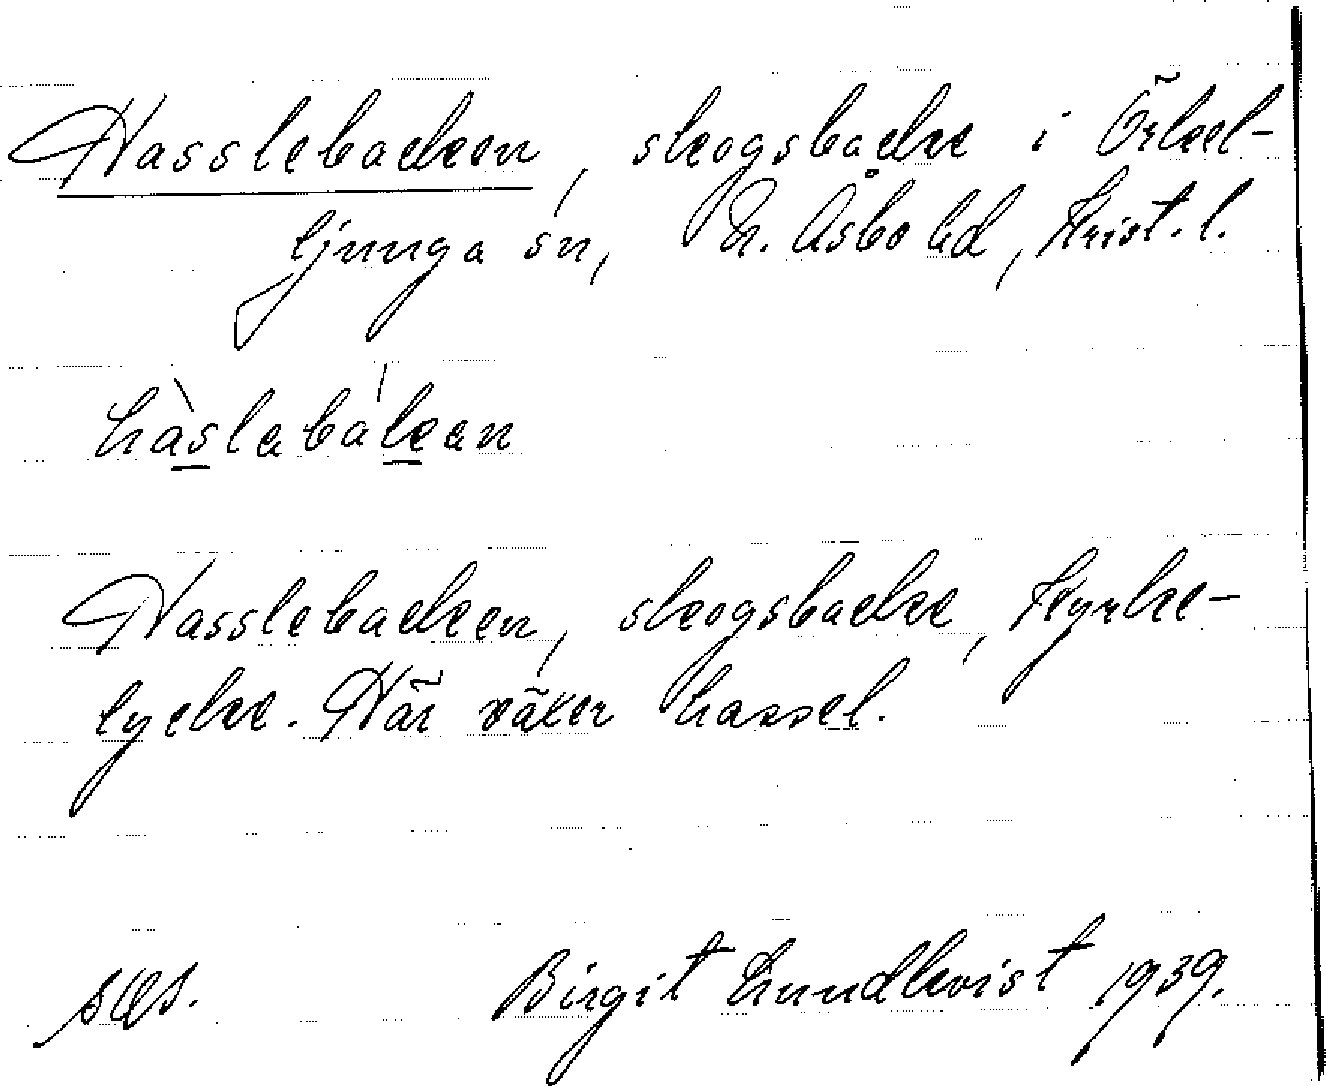 Hasslebacken, skogsbacke i Örkel-
ljunga sn, N. Åsbo hd, Krist. l.
hàslebákan
Hasslebacken, skogsbacke, Kyrke-
lycke. Här växer hassel.
Birgit Lundkvist 1939.